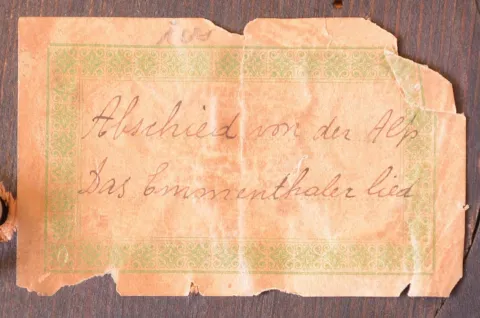 Abschied von der Alp
Das Emmenthaler lied